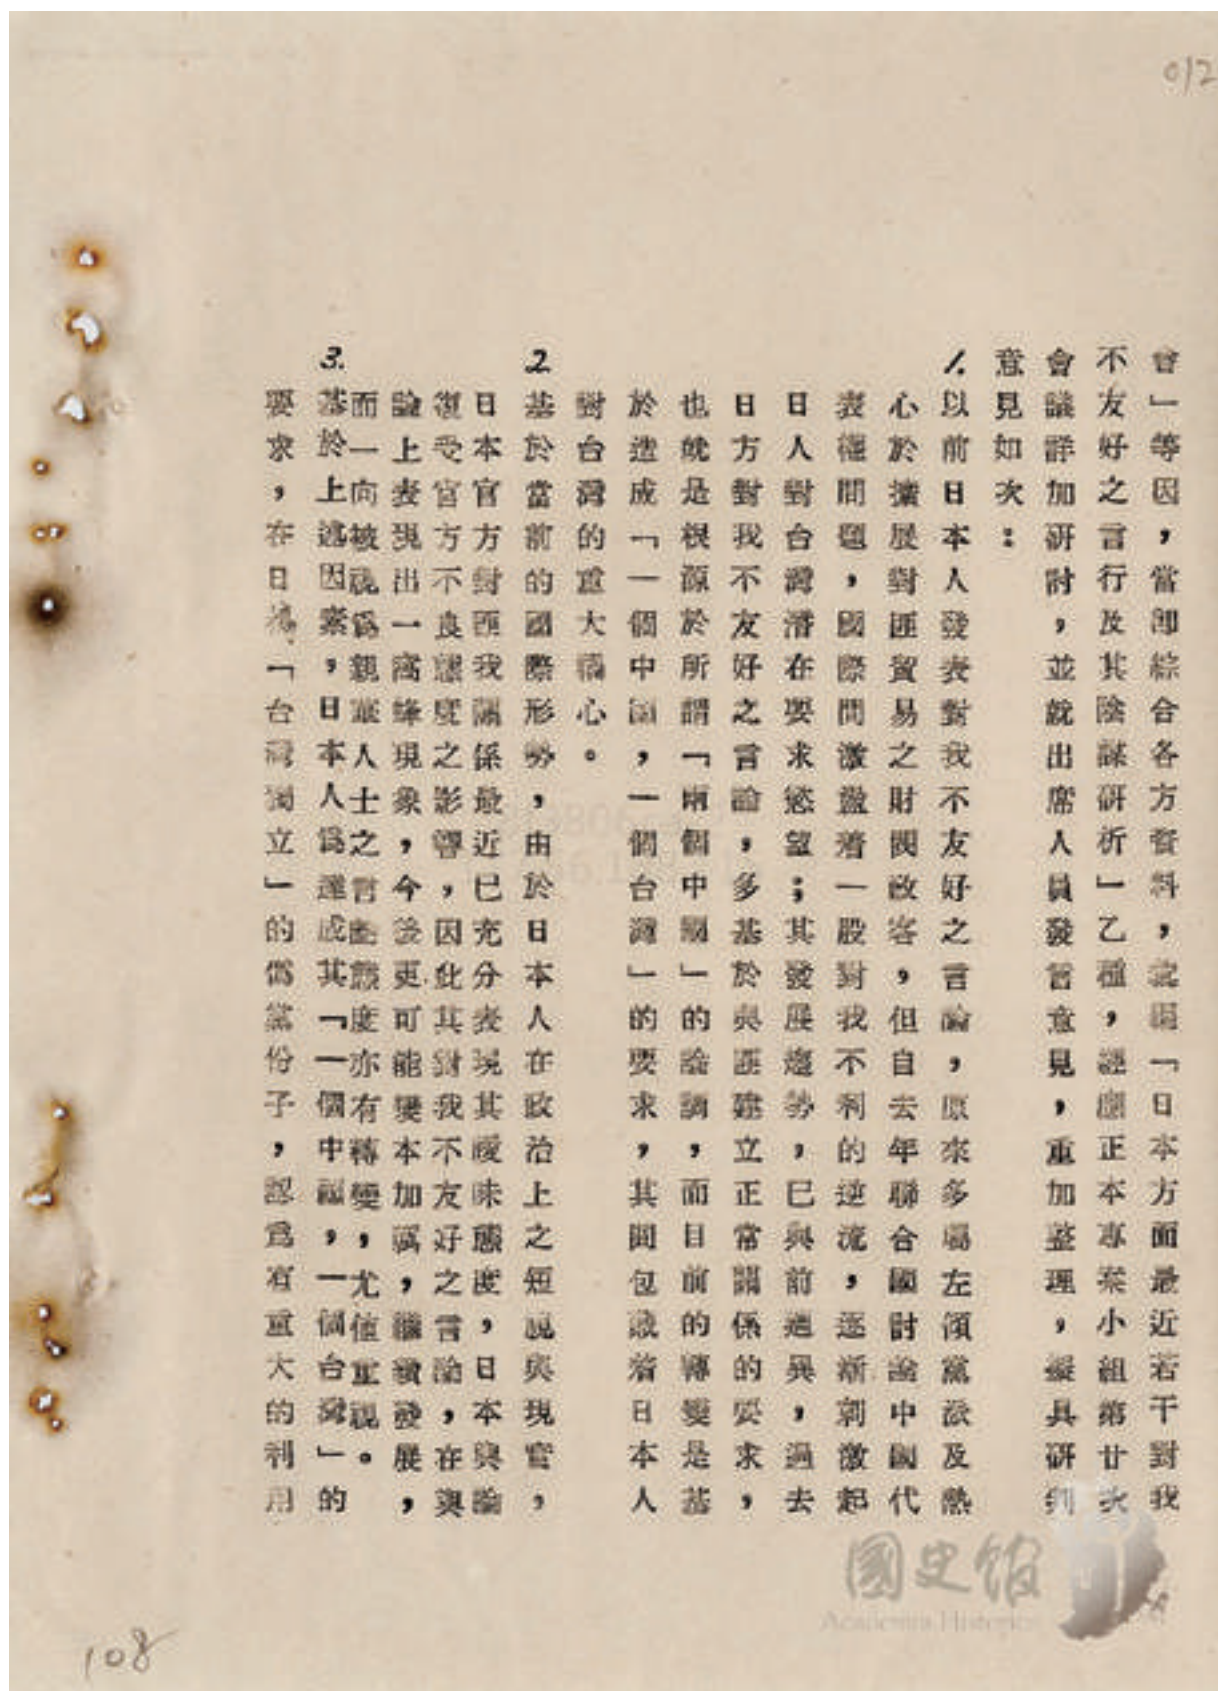 012
會」等因，當即綜合各方資料，彙編「日本方面最近若干對我
不友好之言行及其陰謀研析」乙種，經慶正本專案小組第廿次
會議詳加研討，並就出席人員發言意見，重加整理，擬具研判
意見如次：
1.以前日本人發表對我不友好之言論，原來多屬左傾黨派及熱
心於擴展對匪貿易之財閥政客，但自去年聯合國討論中國代
表權問題，國際間激盪着一股對我不利的逆流，逐漸刺激起
日人對台灣潛在要求慾望；其發展趨勢，已與前迥異，過去
日方對我不友好之言論，多基於與匪建立正常關係的要求，
也就是根源於所謂「兩個中國」的論調，而目前的轉變是基
於造成「一個中國，一個台灣」的要求，其間包藏着日本人
對台灣的重大禍心。
2.基於當前的國際形勢，由於日本人在政治上之短視與現實，
日本官方對匪我關係最近已充分表現其曖昧態度，日本輿論
復受官方不良態度之影響，因此其對我不友好之言論，在輿
論上表現出一高峰現象，今後更可能變本加厲，繼續發展，
而一向被視為親華人士之言論態度亦有轉變，尤值重視。
3.基於上述因素，日本人為達成其「一個中國，一個台灣」的
要求，在日搞「台灣獨立」的偽黨份子，認為有重大的利用
國史館
Academia Historica
108